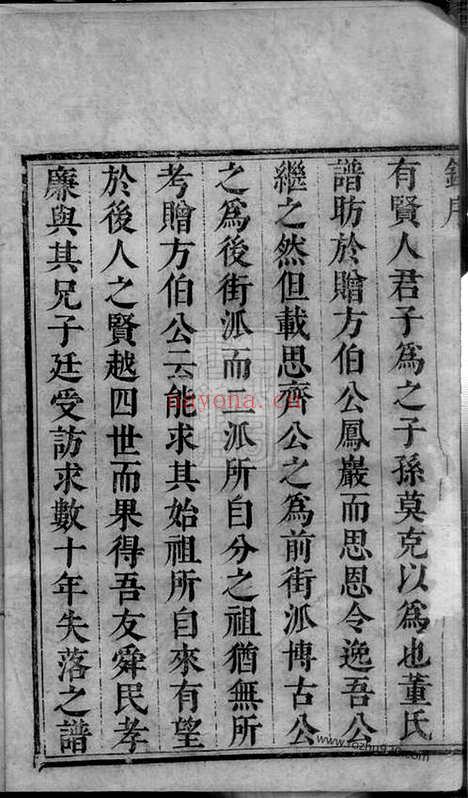 序
有賢人君子爲之子孫莫克以爲也董氏
譜昉於贈方伯公鳳巖而思恩令逸吾公
繼之然但載思齊公之爲前街派博古公
之爲後街派而二派所自分之祖猶無所
考贈方伯公云能求其始祖所自來有望
於後人之賢越四世而果得吾友舜民孝
廉與其兄子廷受訪求數十年失落之譜
nayona.cn